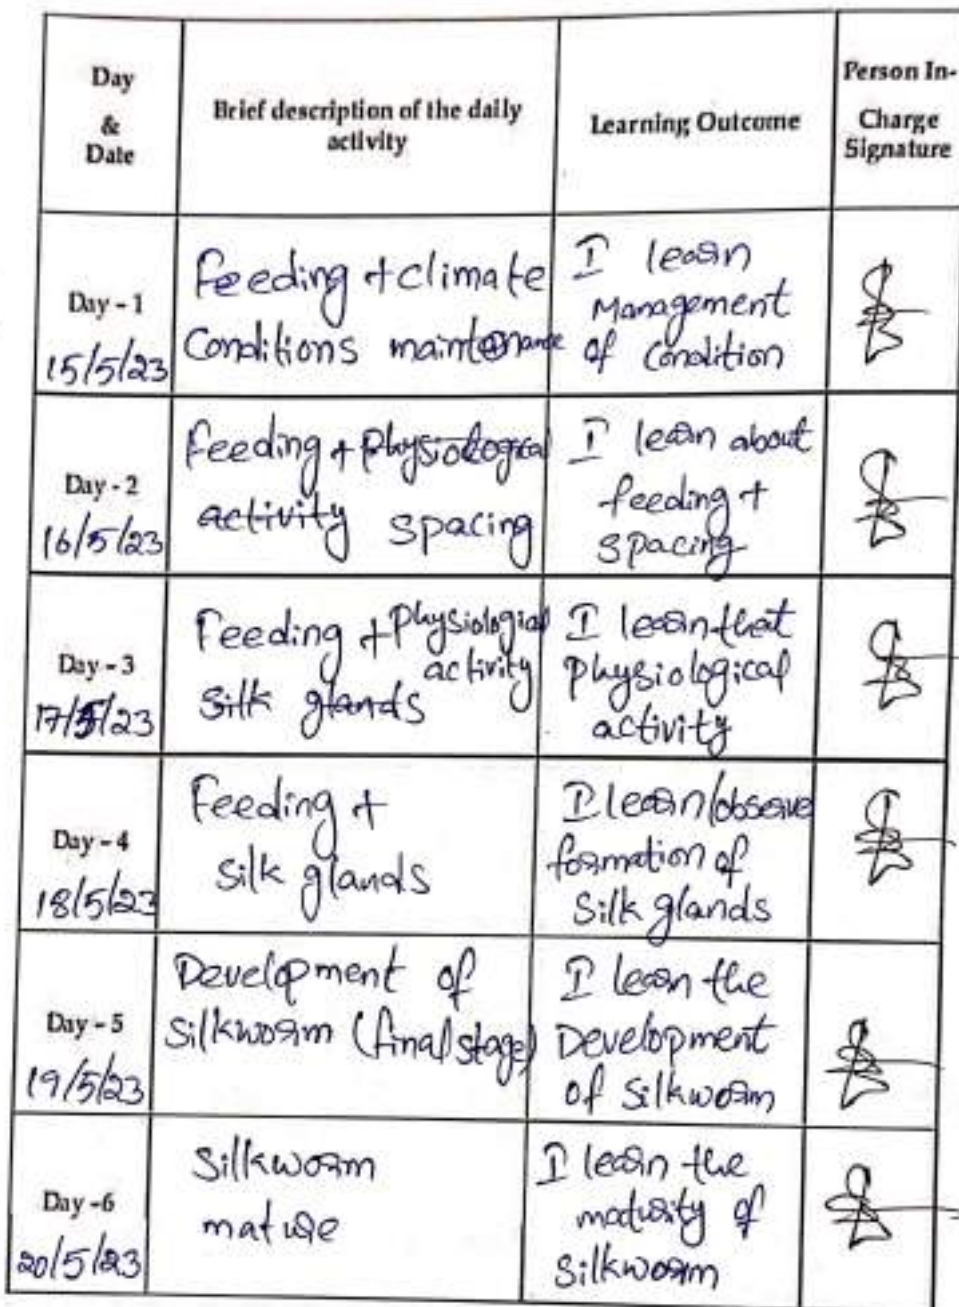 Day
&
Date
Brief description of the daily
activity
Learning Outcome
Person In-
Charge
Signature
Day - 1
15/5/23
Feeding + climate
Conditions maintenance
I learn
Management
of condition
Day - 2
16/5/23
Feeding + physiological
activity spacing
I learn about
feeding +
spacing
Day - 3
17/5/23
Feeding + physiological
activity
silk glands
I learn that
physiological
activity
Day - 4
18/5/23
Feeding +
silk glands
I learn/observe
formation of
silk glands
Day - 5
19/5/23
Development of
silkworm (final stage)
I learn the
Development
of silkworm
Day -6
20/5/23
silkworm
mature
I learn the
maturity of
silkworm